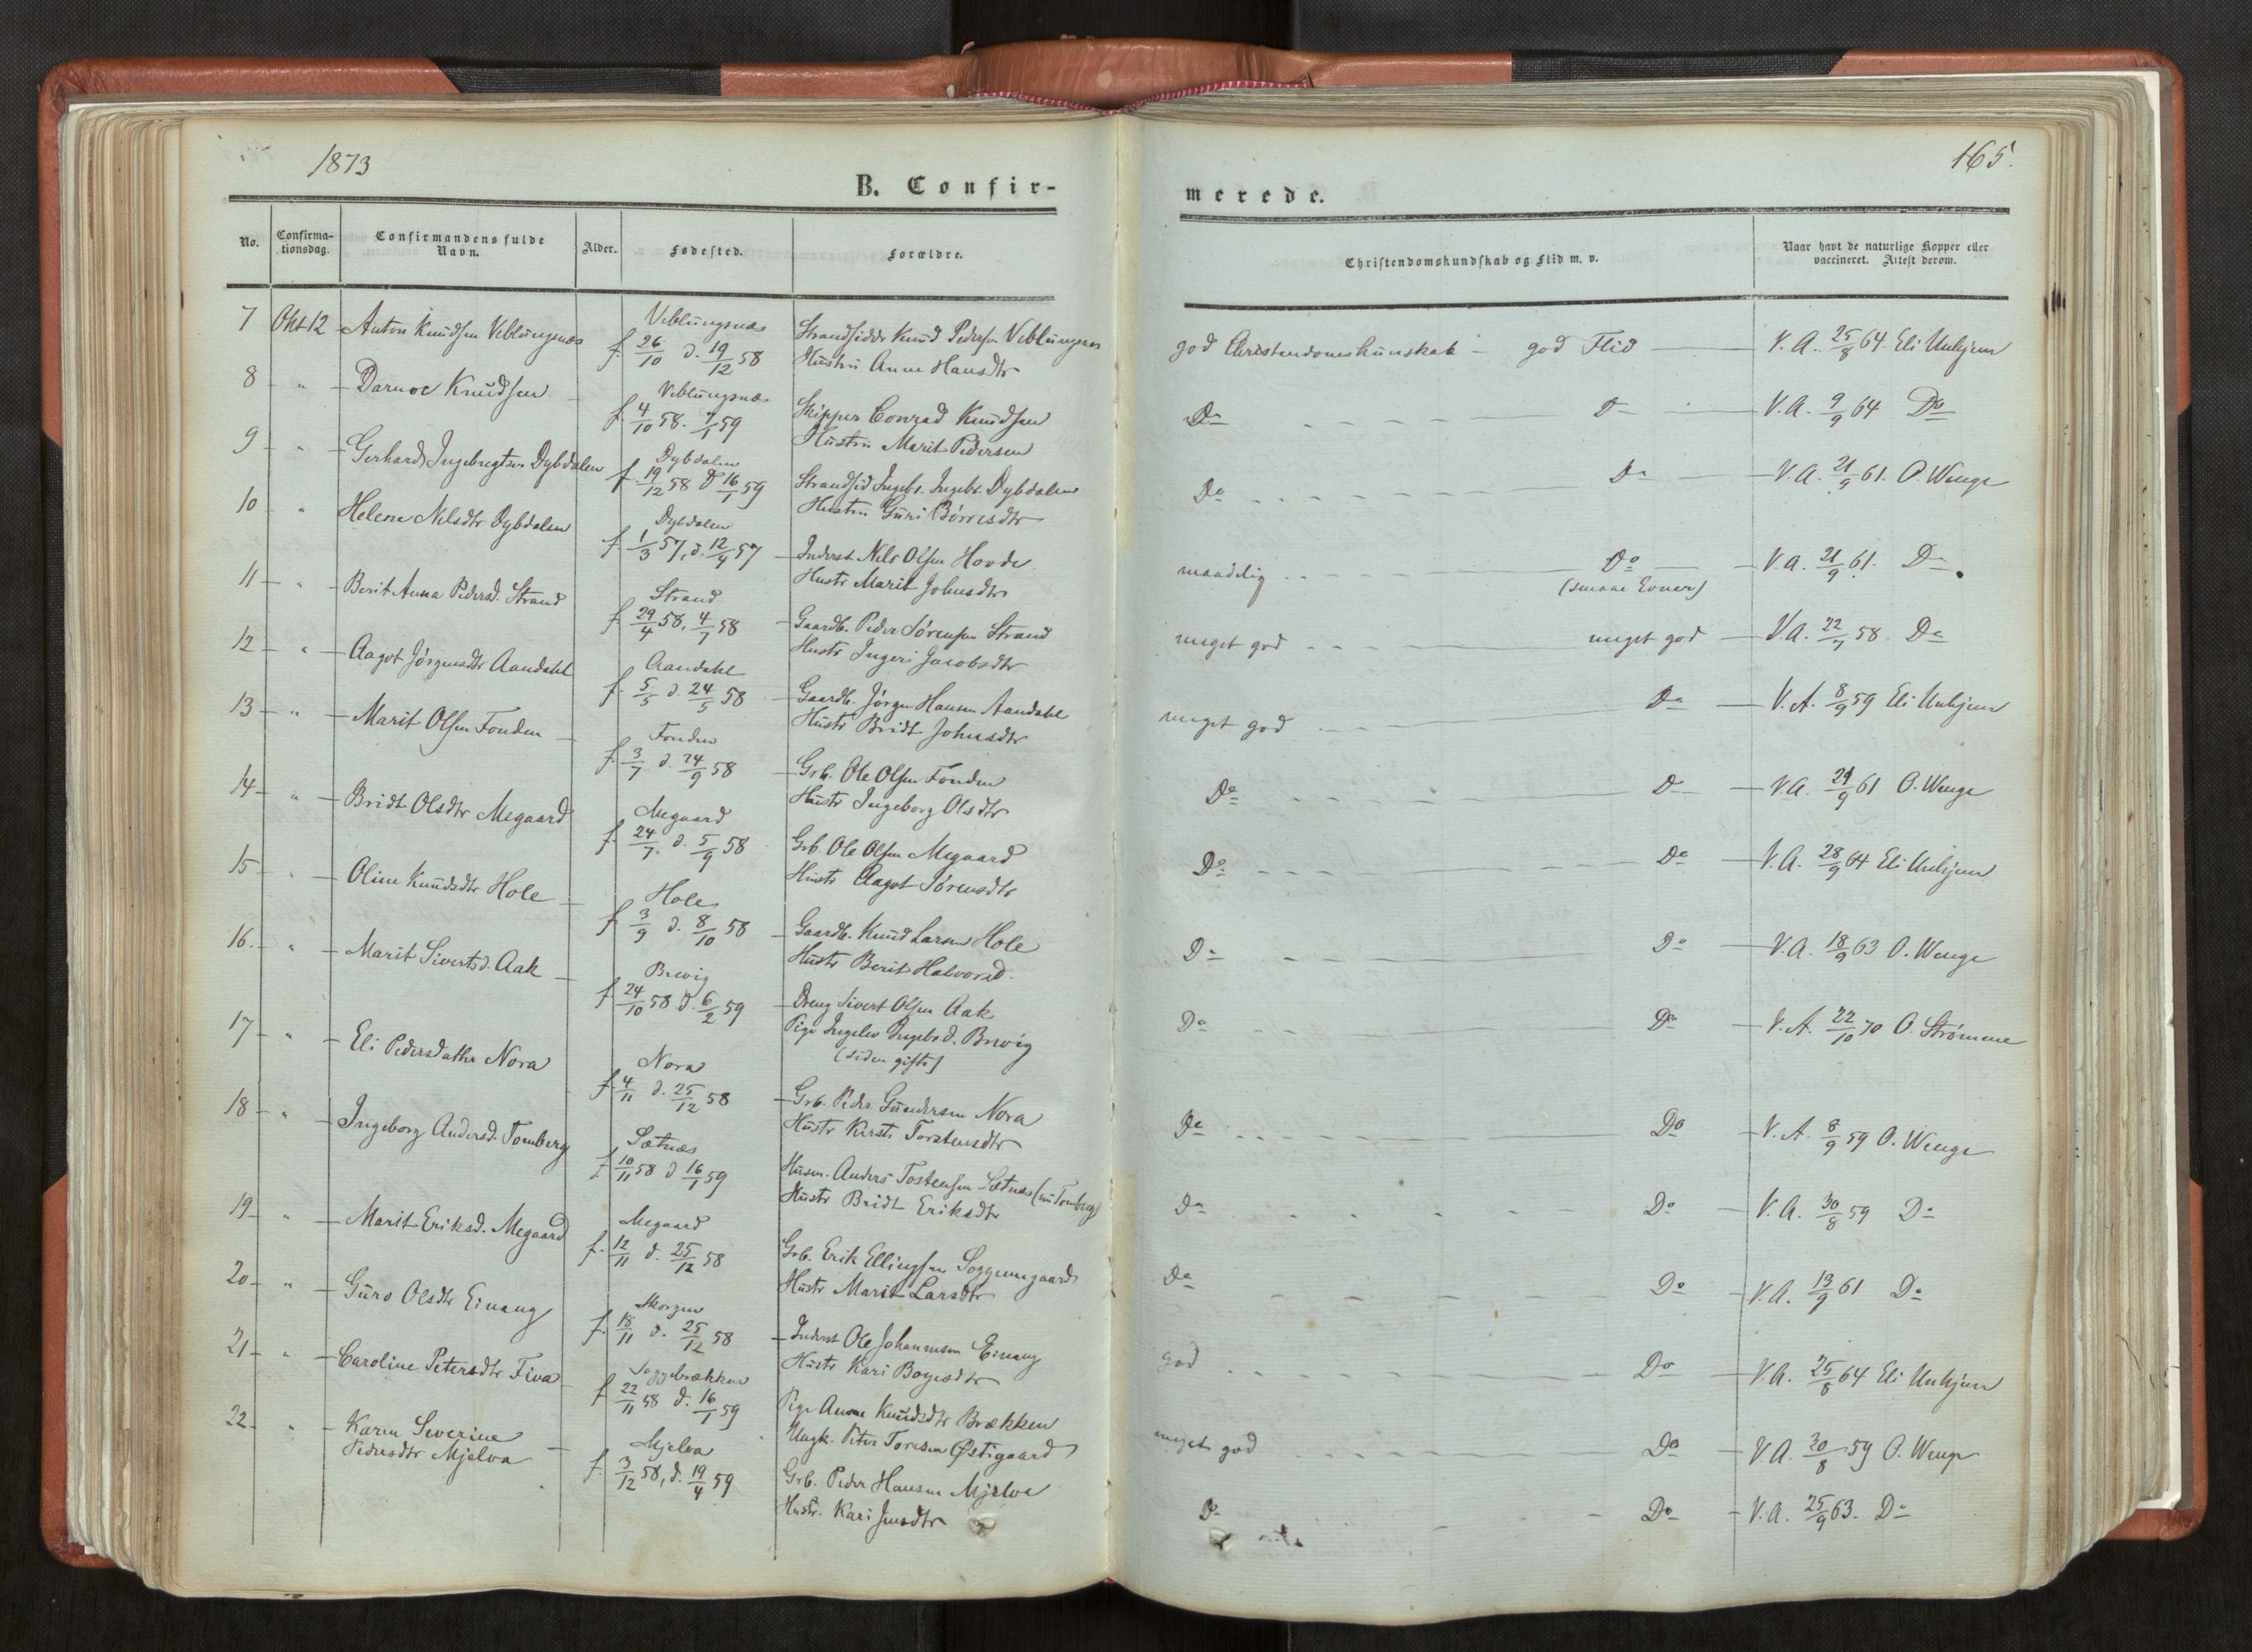 1873
B. Confir-
No. Confirma-tionsdag. Confirmandens fulde Navn. Alder. Fødested. Forældre.
7 Okt 12 Anton Knudsen Veblungsnæs Veblungsnæs Strandsidder Knud Pedersen Veblungsnes
f. 26/10 d. 19/12 58 Hustru Anne Hansdtr
8 " Knudsen Veblungsnæs Skipper Conrad Knudsen
f. 4/10 58. 1/1 59 Hustru Marit Pedersen
9 " Gerhard Ingebregtsen Dybdalen Dybdalen Strandsid Ingebr. Ingebr. Dybdalen
f. 19/12 58 d 16/1 59 Hustru Guri Børresdtr
10 " Helene Nilsdtr Dybdalen Dybdalen Inderst Nils Olsen Hovde
f. 1/3 57, d. 12/4 57 Hustr Marit Johnsdtr
11 " Berit Anna Pedersd. Strand Strand Gaardb. Peder Sørensen Strand
f. 29/4 58, 4/7 58 Hustr Ingeri Jacobsdtr
12 " Aagot Jørgensdtr Aandahl Aandahl Gaardb. Jørgen Hansen Aandahl
f. 5/5 d. 24/5 58 Hustr Bridt Johnsdtr
13 " Marit Olsen Fonden Fonden Grb. Ole Olsen Fonden
f. 3/7 d. 24/9 58 Hustr Ingeborg Olsdtr
14 " Bridt Olsdtr Megaard Megaard Grb. Ole Olsen Megaard
f. 24/7. d. 5/9 58 Hustr Aagot Sørensdtr
15 " Oline Knudsdtr Hole Hole Gaardb. Knud Larsen Hole
f. 3/9 d. 8/10 58 Hustr Berit Halvorsd.
16 " Marit Sivertsd. Aak Brevig Dreng Sivert Olsen Aak
f. 24/10 58 d. 6/2 59 Pige Ingebr.d. Brevig
(siden gifte)
17 " Eli Pedersdatter Nora Nora Grb. Peder Gundersen Nora
f. 4/11 d. 25/12 58 Hustr Kirsti Torstensdtr
18 " Ingeborg Andersd. Tomberg Sætnæs Husm. Anders Tostensen Sætnæs (nu Tomberg)
f. 10/11 58 d 16/1 59 Hustr Bridt Eriksdtr
19 " Marit Eriksd. Megaard Megaard Grb. Erik Ellingsen Soggemgaard
f. 12/11 d. 25/12 58 Hustr Marit Larsdtr
20 " Guro Olsdtr Einang Skorgen Inderst Ole Johannesen Einang
f. 18/11 d. 25/12 58 Hustr Kari Boyesdtr
21 " Caroline Petersdtr Fiva Soggebrækken Pige Anne Knudsdtr Brækken
f 22/11 58 d. 16/1 59 Ungk. Peter Toresen Østigaard
22 " Karen Severine Mjelva Grb. Peder Hansen Mjelva
Pedersdtr Mjelva f. 3/12 58, d. 19/4 59 Hustr. Kari Jensdtr
165.
merede.
Christendomskundskab og Flid m. v. Naar havt de naturlige Kopper eller vaccineret. Attest derom.
god Christendomskunskab – god Flid V. A. 25/8 64 Eli Unhjem
Do Do V.A. 9/9 64 Do
Do Do V.A. 21/9 61. O. Wenge
maadelig Do V.A. 21/9 61. Do
(smaae Evner)
meget god meget god V.A. 22/7 58 Do
meget god Do V.A. 8/9 59 Eli Unhjem
Do Do V.A. 21/9 61 O. Wenge
Do Do V.A. 28/9 64 Eli Unhjem
Do Do V.A. 18/9 63 O. Wenge
Do Do V.A. 22/10 70 O. Strømme
Do Do V.A. 8/9 59 O. Wenge
Do Do V.A. 30/8 59 Do
Do Do V.A. 13/9 61 Do
god Do V.A. 25/8 64 Eli Unhjem
meget god Do V.A. 30/8 59 O. Wenge
Do Do V.A. 25/9 63. Do